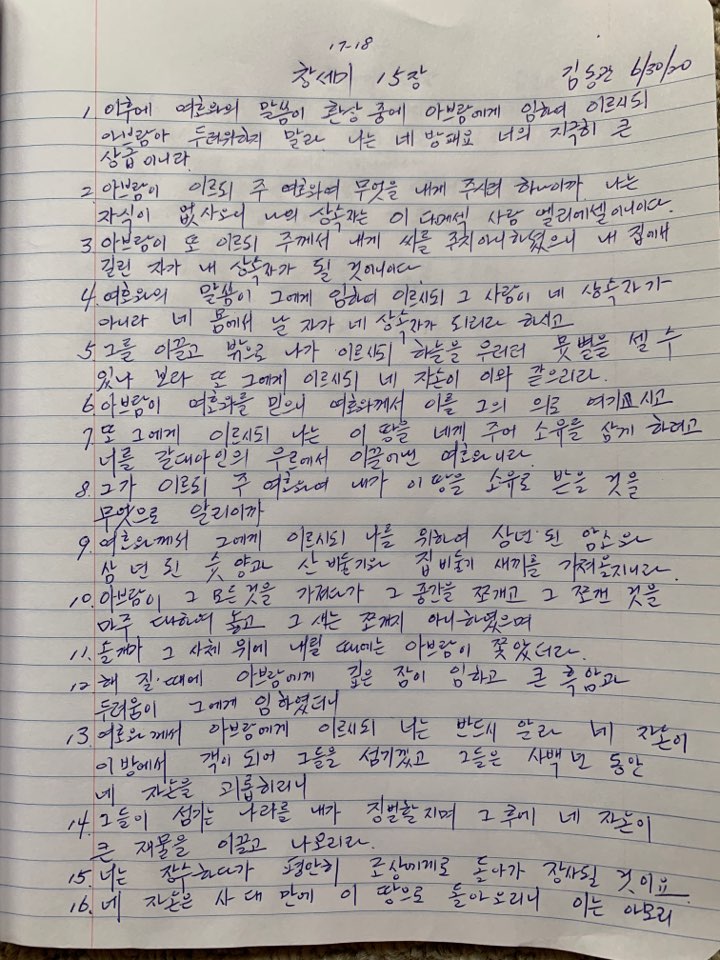 17-18
창세기 15장 김동관 6/30/20
1. 이후에 여호와의 말씀이 환상 중에 아브람에게 임하여 이르시되
아브람아 두려워하지 말라 나는 네 방패요 너의 지극히 큰
상급이니라
2. 아브람이 이르되 주 여호와여 무엇을 내게 주시려 하나이까 나는
자식이 없사오니 나의 상속자는 이 다메섹 사람 엘리에셀이니이다
3. 아브람이 또 이르되 주께서 내게 씨를 주지 아니하셨으니 내 집에서
길린 자가 내 상속자가 될 것이니이다.
4. 여호와의 말씀이 그에게 임하여 이르시되 그 사람이 네 상속자가
아니라 네 몸에서 날 자가 네 상속자가 되리라 하시고
5. 그를 이끌고 밖으로 나가 이르시되 하늘을 우러러 뭇별을 셀 수
있나 보라 또 그에게 이르시되 네 자손이 이와 같으리라.
6. 아브람이 여호와를 믿으니 여호와께서 이를 그의 의로 여기시고
7. 또 그에게 이르시되 나는 이 땅을 네게 주어 소유를 삼게 하려고
너를 갈대아인의 우르에서 이끌어낸 여호와니라
8. 그가 이르되 주 여호와여 내가 이 땅을 소유로 받을 것을
무엇으로 알리이까
9. 여호와께서 그에게 이르시되 나를 위하여 삼년 된 암소와
삼 년 된 숫양과 산 비둘기와 집 비둘기 새끼를 가져올지니라
10. 아브람이 그 모든것을 가져다가 그 중간을 쪼개고 그 쪼갠 것을
마주 대하여 놓고 그 새는 쪼개지 아니하였으며
11. 솔개가 그 사체 위에 내릴 때에는 아브람이 쫓았더라.
12. 해 질 때에 아브람에게 깊은 잠이 임하고 큰 흑암과
두려움이 그에게 임하였더니
13. 여호와께서 아브람에게 이르시되 너는 반드시 알라 네 자손이
이방에서 객이 되어 그들을 섬기겠고 그들은 사백 년 동안
네 자손을 괴롭히리니
14. 그들이 섬기는 나라를 내가 징벌할지며 그 후에 네 자손이
큰 재물을 이끌고 나오리라.
15. 너는 장수하다가 평안히 조상에게로 돌아가 장사될 것이요
16. 네 자손은 사 대 만에 이 땅으로 돌아오리니 이는 아모리